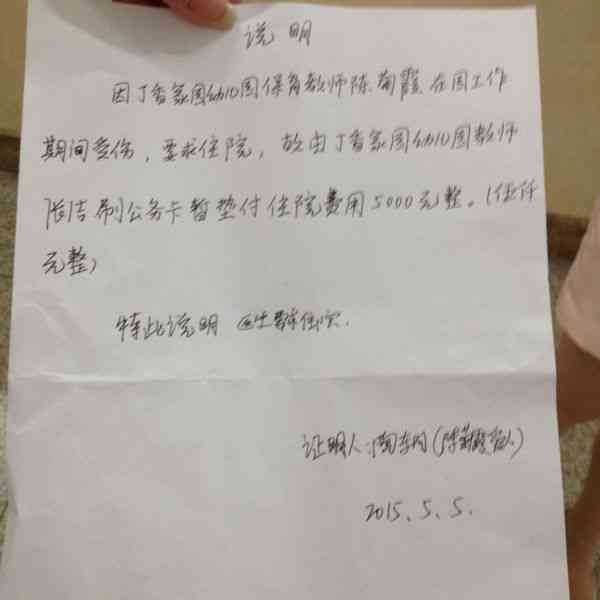 说明
因丁香家园幼儿园保育教师陈菊霞在园工作
期间受伤，要求住院，故由丁香家园幼儿园教师
张洁刷公务卡暂垫付住院费用5000元整。（伍仟
元整）
特此说明 医生要求住院.
证明人：陶（陈菊霞家人）
2015.5.5.